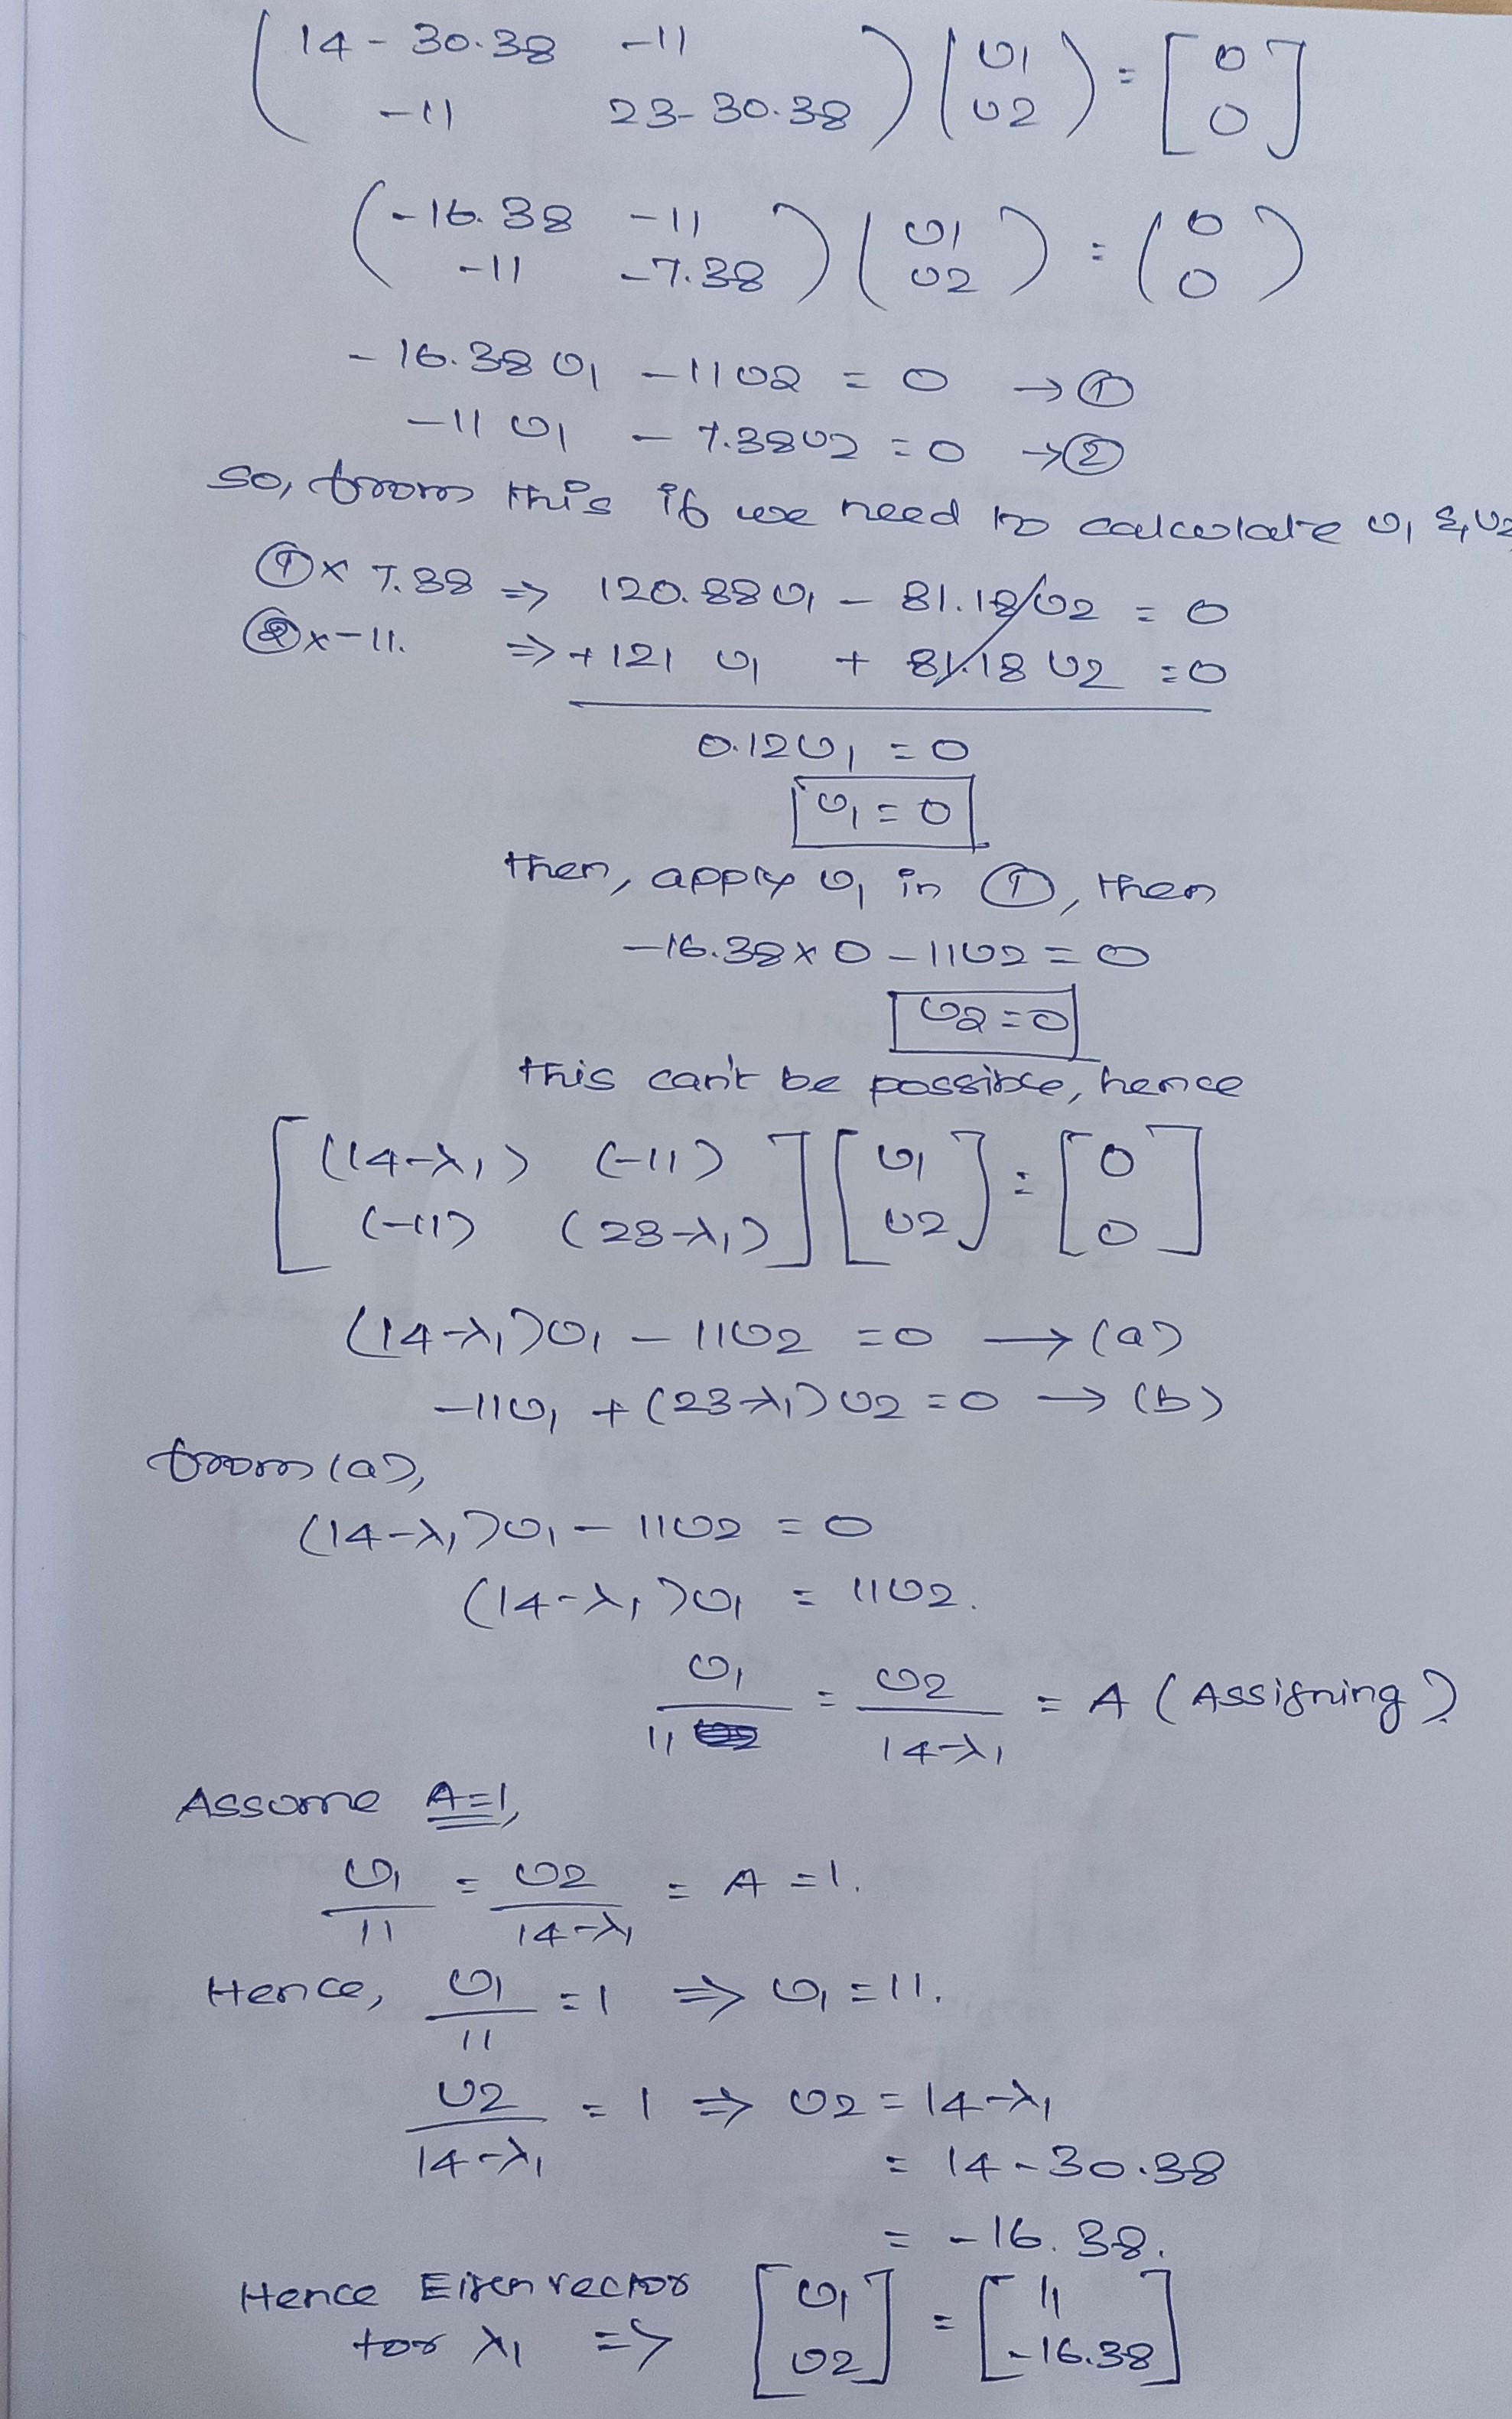 (14-30.38 -11
-11 23-30.38) (U1 U2) = [0 0]
(-16.38 -11
-11 -7.38) (U1 U2) = (0 0)
-16.38 U1 -11U2 = 0 → ①
-11 U1 - 7.38U2 = 0 → ②
so, from this if we need to calculate U1 & U2
① x 7.38 ⇒ 120.88U1 - 81.18U2 = 0
② x -11. ⇒ +121 U1 + 81.18 U2 = 0
0.12U1 = 0
U1 = 0
then, apply U1 in ①, then
-16.38 x 0 - 11U2 = 0
U2 = 0
this can't be possible, hence
[(14-λ1) (-11)
(-11) (23-λ1)] [U1 U2] = [0 0]
(14-λ1)U1 - 11U2 = 0 → (a)
-11U1 + (23-λ1)U2 = 0 → (b)
from (a),
(14-λ1)U1 - 11U2 = 0
(14-λ1)U1 = 11U2.
U1/11 = U2/14-λ1 = A (Assigning)
Assume A=1,
U1/11 = U2/14-λ1 = A = 1.
Hence, U1/11 = 1 ⇒ U1 = 11.
U2/14-λ1 = 1 ⇒ U2 = 14-λ1
= 14-30.38
= -16.38.
Hence Eigen vector [U1 U2] = [11 -16.38]
for λ1 ⇒